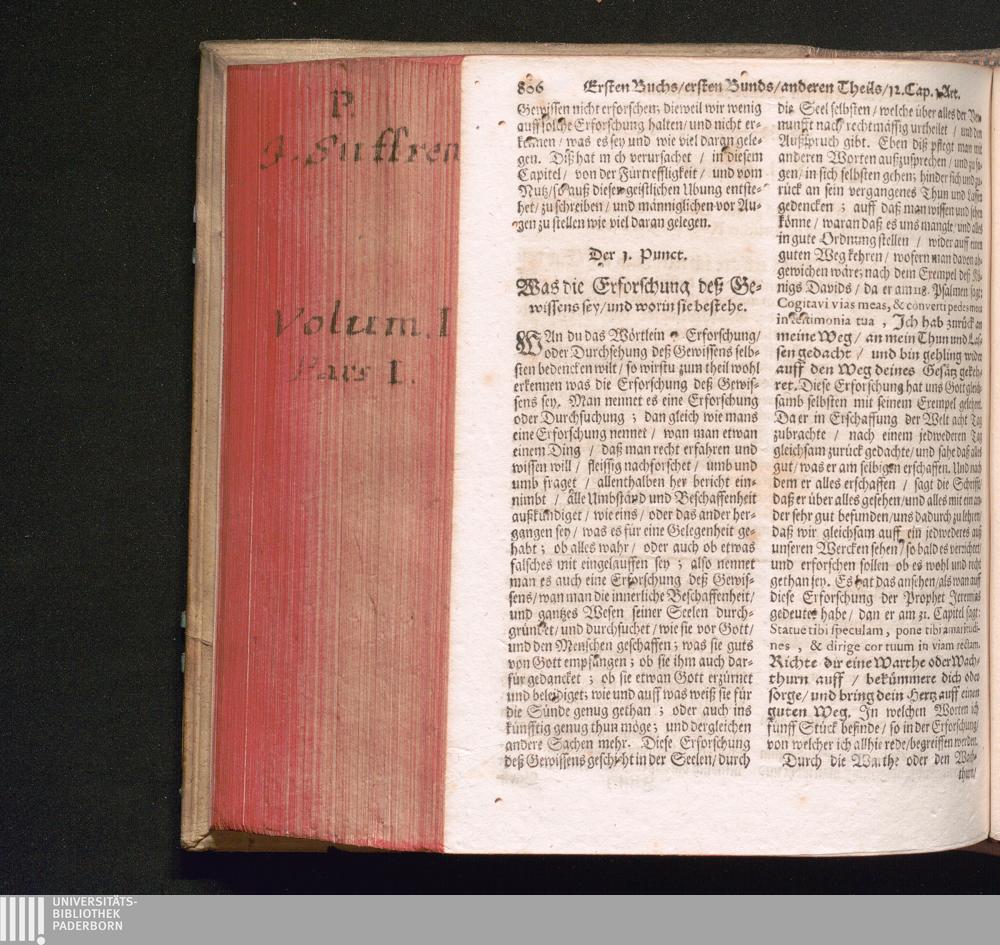 P.
J. Suffren
Volum. I
Pars I.
806 Ersten Buchs/ersten Bunds/anderen Theils/12. Cap. 1. Art.
Gewissen nicht erforschen; dieweil wir wenig
auff solche Erforschung halten/und nicht er-
kennen/was es sey und wie viel daran gele-
gen. Diß hat mich verursachet / in diesem
Capitel / von der Fürtreffligkeit / und vom
Nutz/so auß dieser geistlichen Ubung entste-
het/zu schreiben / und männiglichen vor Au-
gen zu stellen wie viel daran gelegen.
Der 1. Punct.
Was die Erforschung deß Ge-
wissens sey/und worin sie bestehe.
WAn du das Wörtlein Erforschung/
oder Durchsehung deß Gewissens selb-
sten bedencken wilt/so wirstu zum theil wohl
erkennen was die Erforschung deß Gewis-
sens sey. Man nennet es eine Erforschung
oder Durchsuchung ; dan gleich wie mans
eine Erforschung nennet / wan man etwan
einem Ding / daß man recht erfahren und
wissen will / fleissig nachforschet / umb und
umb fraget / allenthalben her bericht ein-
nimbt / alle Umbständ und Beschaffenheit
außkündiget / wie eins / oder das ander her-
gangen sey / was es für eine Gelegenheit ge-
habt ; ob alles wahr / oder auch ob etwas
falsches mit eingelauffen sey ; also nennet
man es auch eine Erforschung deß Gewis-
sens/wan man die innerliche Beschaffenheit/
und gantzes Wesen seiner Seelen durch-
gründet/und durchsuchet/wie sie vor Gott/
und den Menschen geschaffen; was sie guts
von Gott empfangen ; ob sie ihm auch dar-
für gedancket ; ob sie etwan Gott erzürnet
und beleidiget; wie und auff was weiß sie für
die Sünde genug gethan ; oder auch ins
künfftig genug thun möge; und dergleichen
andere Sachen mehr. Diese Erforschung
deß Gewissens geschicht in der Seelen/durch
die Seel selbsten / welche über alles der Ver-
nunfft nach/rechtmässig urtheilet / und den
Außspruch gibt. Eben diß pflegt man mit
anderen Worten außzusprechen / und zu sa-
gen/in sich selbsten gehen; hinder sich und zu-
rück an sein vergangenes Thun und Lassen
gedencken ; auff daß man wissen und sehen
könne / waran daß es uns mangle/und alles
in gute Ordnung stellen / wider auff einen
guten Weg kehren / wofern man davon ab-
gewichen wäre; nach dem Exempel deß Kö-
nigs Davids / da er am 118. Psalmen sagt:
Cogitavi vias meas, & converti pedes meos
in testimonia tua , Ich hab zurück an
meine Weg / an mein Thun und Las-
sen gedacht / und bin gehling wider
auff den Weg deines Gesätz gekeh-
ret. Diese Erforschung hat uns Gott gleich-
samb selbsten mit seinem Exempel gelehret.
Da er in Erschaffung der Welt acht Tag
zubrachte / nach einem jedwederen Tag
gleichsam zurück gedachte/und sahe daß alles
gut/was er am selbigen erschaffen. Und nach
dem er alles erschaffen / sagt die Schrifft/
daß er über alles gesehen/und alles mit einan-
der sehr gut befunden/uns dadurch zu lehren/
daß wir gleichsam auff ein jedwederes auß
unseren Wercken sehen/so bald es verrichtet/
und erforschen sollen ob es wohl und recht
gethan sey. Es hat das ansehen/als wan auff
diese Erforschung der Prophet Jeremias
gedeutet habe / dan er am 31. Capitel sagt:
Statue tibi speculam, pone tibi amaritudi-
nes , & dirige cor tuum in viam rectam.
Richte dir eine Warthe oder Wach-
thurn auff / bekümmere dich oder
sorge/und bring dein Hertz auff einen
guten Weg. In welchen Worten ich
fünff Stück befinde / so in der Erforschung/
von welcher ich allhie rede/begreiffen werden.
Durch die Warthe oder den Wach-
thurn/
UNIVERSITÄTS-
BIBLIOTHEK
PADERBORN